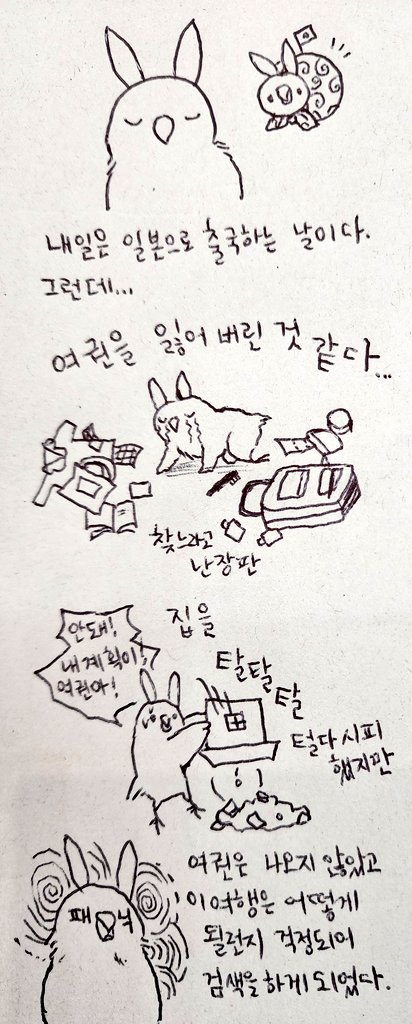 내일은 일본으로 출국하는 날이다.
그런데...
여권을 잃어 버린 것 같다...
찾느라고
난장판
집을
안돼!
내 계획이!
여권아!
탈탈
탈
털다시피
했지만
패닉
여권은 나오지 않았고
이 여행은 어떻게
될런지 걱정되어
검색을 하게 되었다.